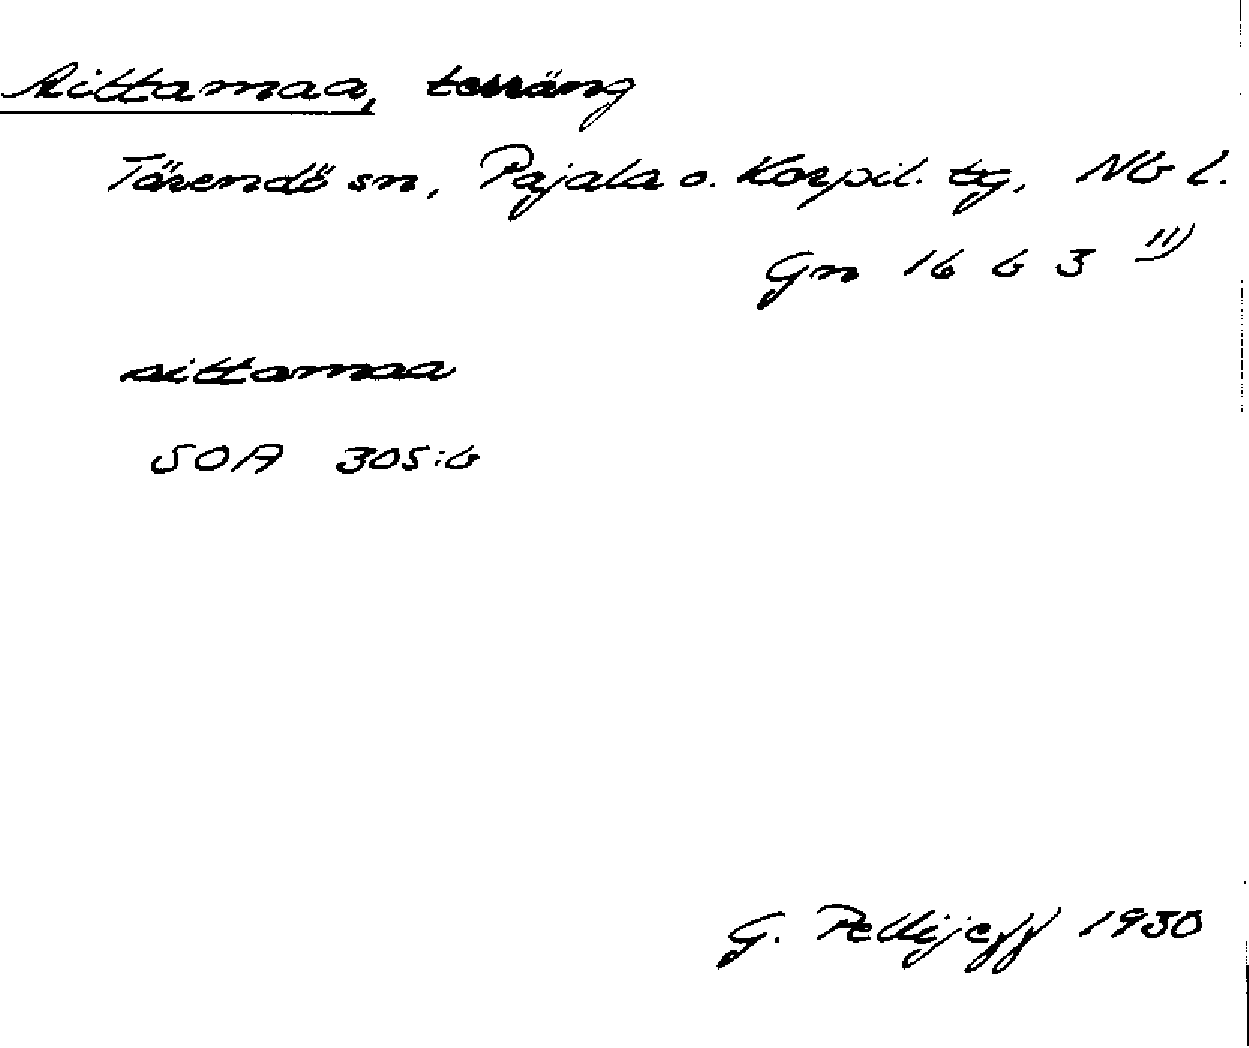 Aittamaa, terräng
Tärendö sn, Pajala o. Korpil. tg, Nb l.
Gn 16 b 3 11)
aittamaa
SOA 305:6
G. Pellijeff 1930